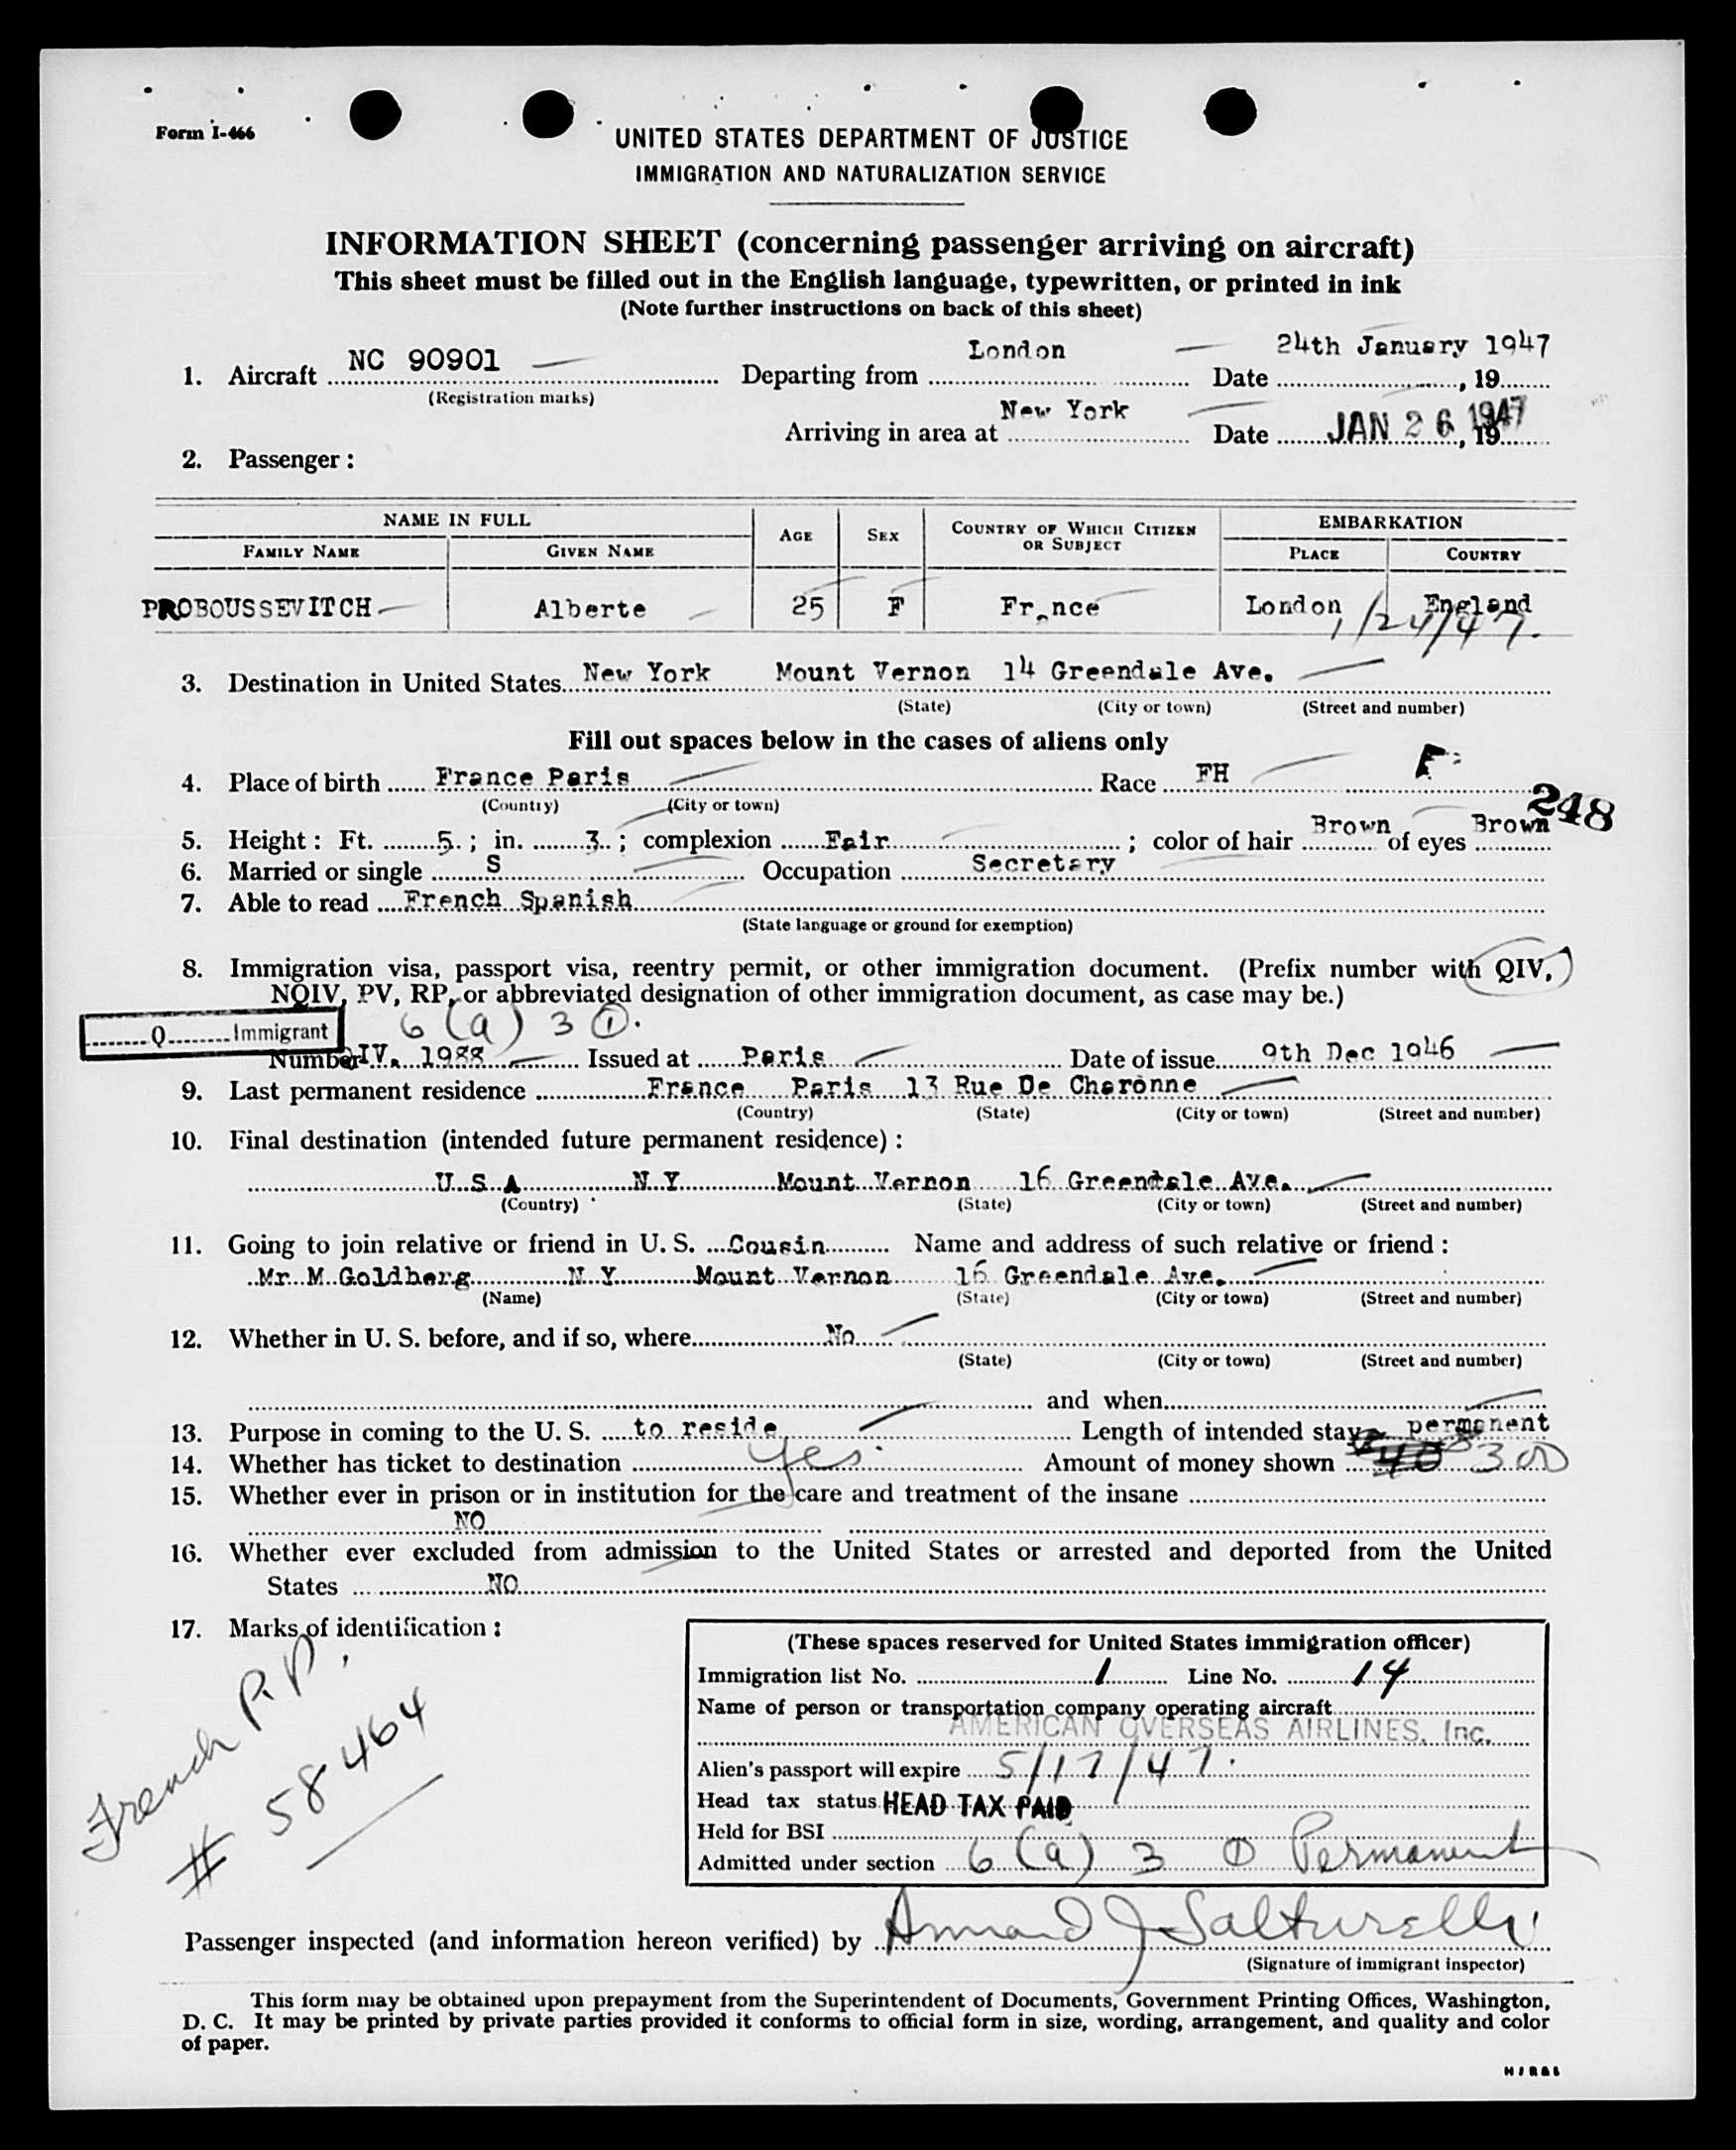 Form I-466
UNITED STATES DEPARTMENT OF JUSTICE
IMMIGRATION AND NATURALIZATION SERVICE
INFORMATION SHEET (concerning passenger arriving on aircraft)
This sheet must be filled out in the English language, typewritten, or printed in ink
(Note further instructions on back of this sheet)
1. Aircraft NC 90901 Departing from London Date 24th January 1947, 19
(Registration marks)
Arriving in area at New York Date JAN 26 1947, 19
2. Passenger:
NAME IN FULL AGE SEX COUNTRY OF WHICH CITIZEN OR SUBJECT EMBARKATION
FAMILY NAME GIVEN NAME PLACE COUNTRY
PROBOUSSEVITCH Alberte 25 F France London England
1/24/47.
3. Destination in United States New York Mount Vernon 14 Greendale Ave.
(State) (City or town) (Street and number)
Fill out spaces below in the cases of aliens only
4. Place of birth France Paris Race FH F
(Country) (City or town)
248
5. Height: Ft. 5; in. 3; complexion Fair; color of hair Brown of eyes Brown
6. Married or single S Occupation Secretary
7. Able to read French Spanish
(State language or ground for exemption)
8. Immigration visa, passport visa, reentry permit, or other immigration document. (Prefix number with QIV,
NQIV, PV, RP, or abbreviated designation of other immigration document, as case may be.)
Q Immigrant 6 (a) 3 ①.
Number QIV. 1988 Issued at Paris Date of issue 9th Dec 1946
9. Last permanent residence France Paris 13 Rue De Charonne
(Country) (State) (City or town) (Street and number)
10. Final destination (intended future permanent residence):
U.S.A N.Y Mount Vernon 16 Greendale Ave.
(Country) (State) (City or town) (Street and number)
11. Going to join relative or friend in U. S. Cousin Name and address of such relative or friend:
Mr M Goldberg N Y Mount Vernon 16 Greendale Ave.
(Name) (State) (City or town) (Street and number)
12. Whether in U. S. before, and if so, where No
(State) (City or town) (Street and number)
and when
13. Purpose in coming to the U. S. to reside Length of intended stay permanent
14. Whether has ticket to destination yes. Amount of money shown 40 300
15. Whether ever in prison or in institution for the care and treatment of the insane
NO
16. Whether ever excluded from admission to the United States or arrested and deported from the United
States NO
17. Marks of identification:
French P.P.
# 58464
(These spaces reserved for United States immigration officer)
Immigration list No. 1 Line No. 14
Name of person or transportation company operating aircraft
AMERICAN OVERSEAS AIRLINES, Inc.
Alien's passport will expire 5/17/47.
Head tax status HEAD TAX PAID
Held for BSI
Admitted under section 6 (a) 3 ① Permanent
Passenger inspected (and information hereon verified) by Armand J Salturelli
(Signature of immigrant inspector)
This form may be obtained upon prepayment from the Superintendent of Documents, Government Printing Offices, Washington,
D. C. It may be printed by private parties provided it conforms to official form in size, wording, arrangement, and quality and color
of paper.